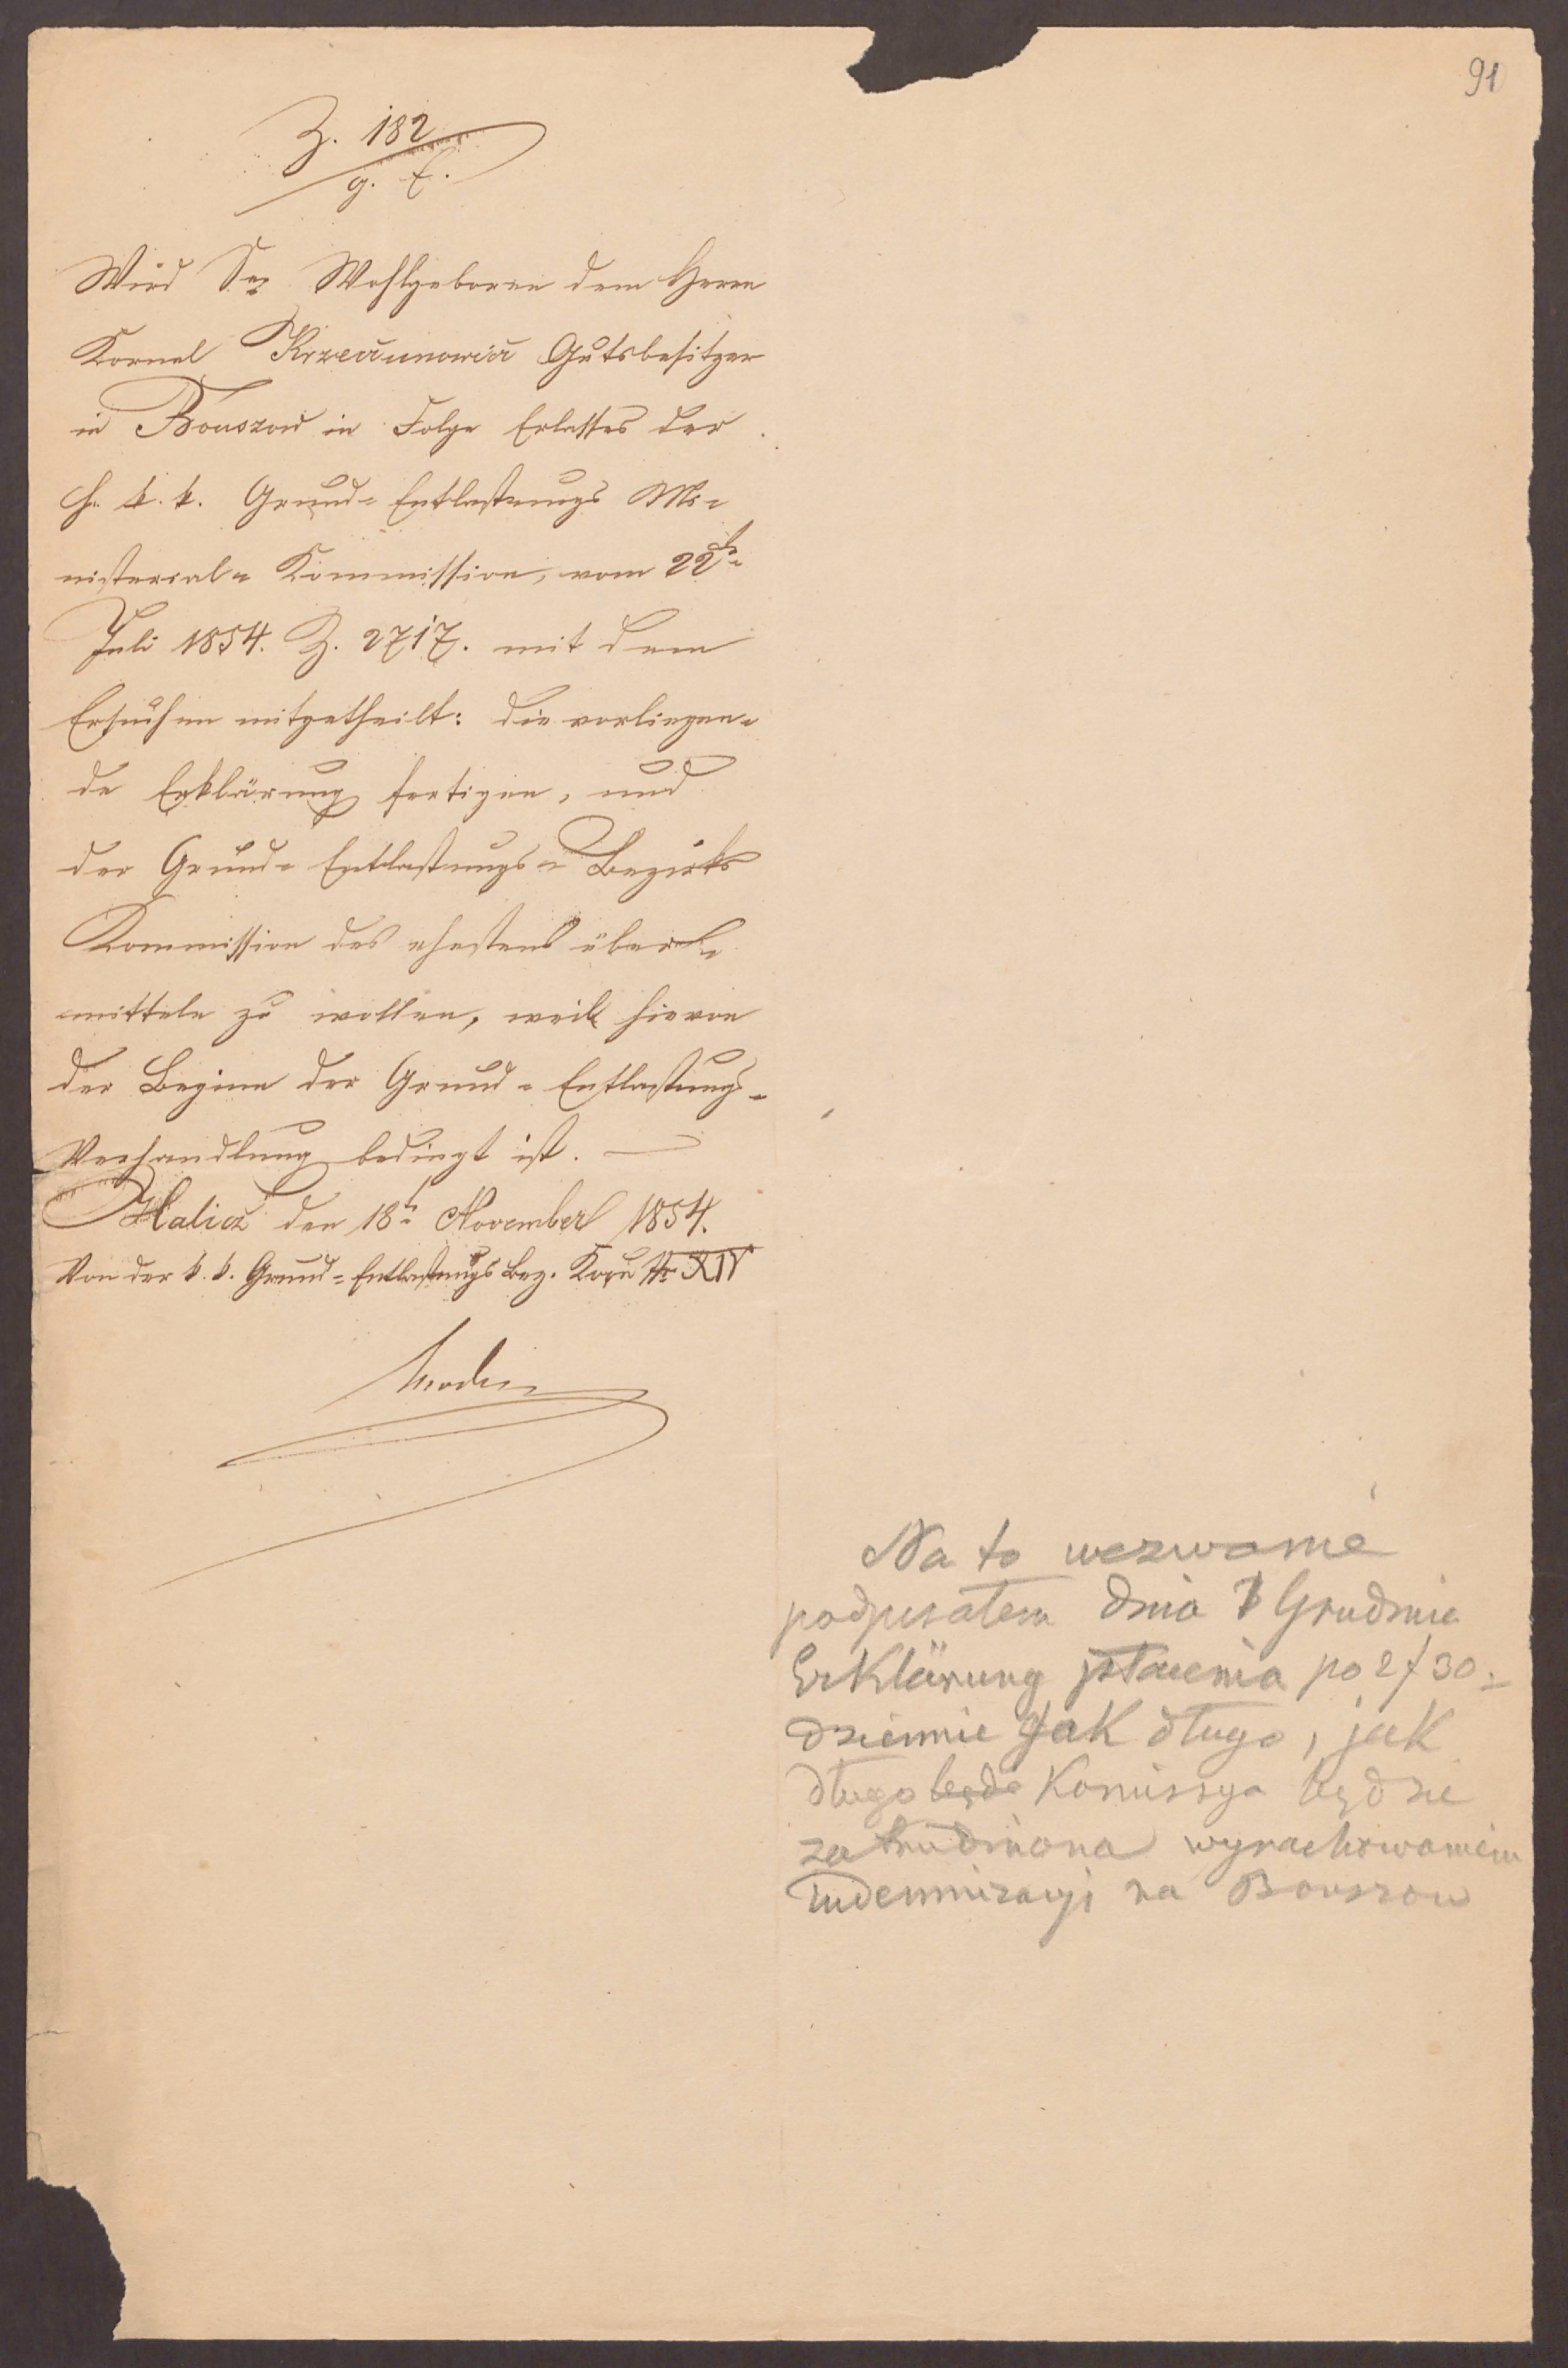 91
Z. 182
g. E.
Wird Sr Wohlgeboren dem Herrn
Kornel Krzeczunowicz Gutsbesitzer
in Bouszow in Folge Erlasses der
h. k. k. Grund= Entlastungs Mi=
nisterial= Kommission, vom 22th
Juli 1854. Z. 2717. mit dem
Ersuchen mitgetheilt: die vorliegen=
de Erklärung fertigen, und
der Grund= Entlastungs= Bezirks
Kommission des ehestens über=
mitteln zu wollen, weil hievon
der Beginn der Grund= Entlastungs=
Verhandlung bedingt ist. —
Halicz den 18t November 1854.
Von der k. k. Grund=Entlastungs Bez. Kom Nr XIV
Na to wezwanie
podpisałem dnia 7 Grudnia
Erklärung płacenia po 2 f 30
dziennie jak długo, jak
długo będe Komissya będzie
zatrudniona wyrachowaniem
indemnizacyi na Bouszow